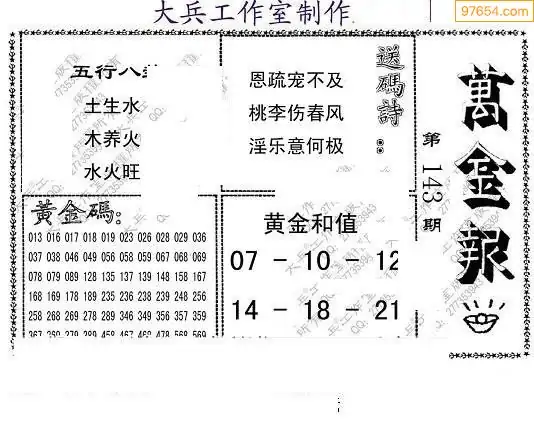 大兵工作室制作
97654.com
五行八
土生水
木养火
水火旺
送碼詩：
恩疏宠不及
桃李伤春风
淫乐意何极
萬金報
第143期
黃金碼:
013 016 017 018 019 023 026 028 029 036
037 038 046 049 056 058 059 067 068 069
078 079 089 128 135 137 139 148 158 167
168 169 178 189 235 236 238 239 248 256
258 268 269 278 289 346 349 356 357 359
黄金和值
07 - 10 - 12
14 - 18 - 21